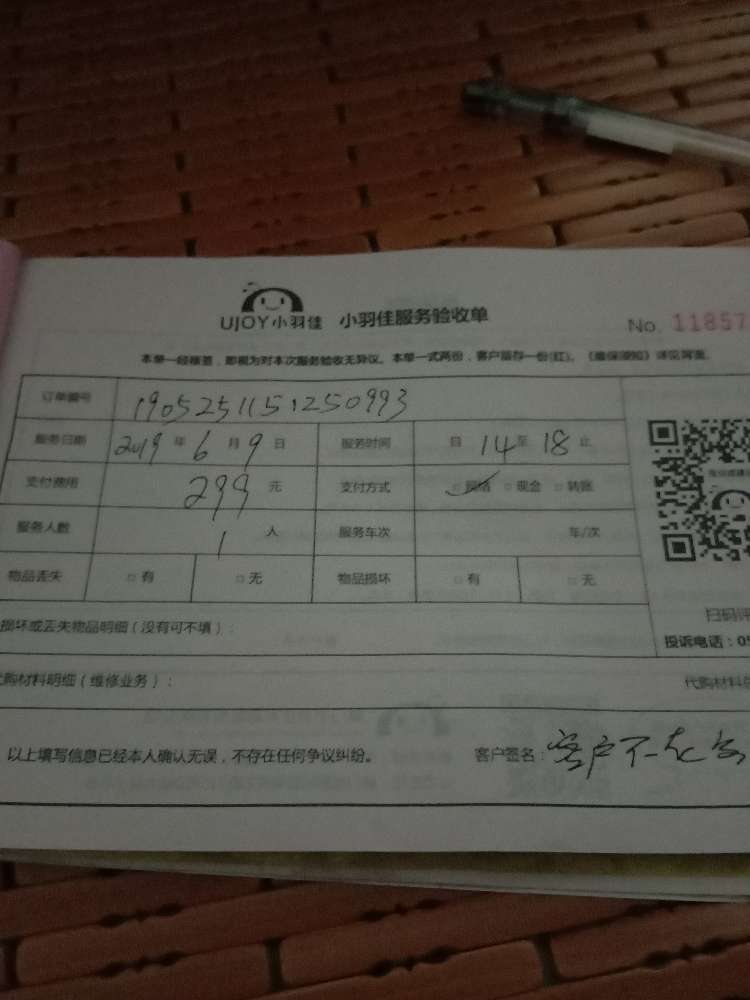 UJOY小羽佳 小羽佳服务验收单 No. 11857
本单一经签签，即视为对本次服务验收无异议。本单一式两份，客户留存一份(红)。《维保须知》详见背面。
订单编号 1905251151250993
服务日期 2019 年 6 月 9 日 服务时间 自 14 至 18 止
支付费用 299 元 支付方式 □网络 □现金 □转账
服务人数 1 人 服务车次 车/次
物品丢失 □有 □无 物品损坏 □有 □无
扫码评
损坏或丢失物品明细（没有可不填）：
投诉电话：05
购材料明细（维修业务）： 代购材料
以上填写信息已经本人确认无误，不存在任何争议纠纷。 客户签名：客户不在家